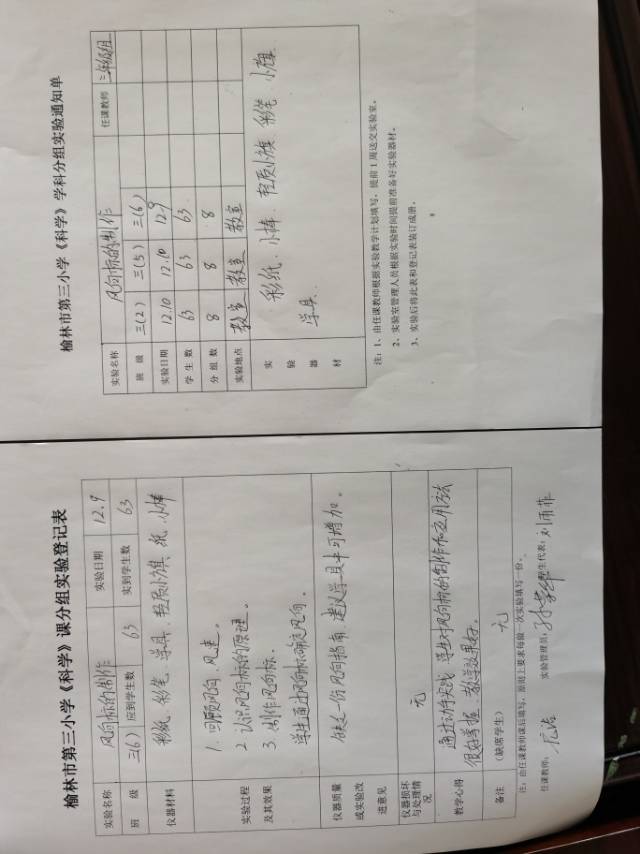 榆林市第三小学《科学》课分组实验登记表
实验名称 风向标的制作 实验日期 12.9
班 级 三(6) 应到学生数 63 实到学生数 63
仪器材料 彩纸、彩笔、学具、轻质小旗、纸、小棒
实验过程及其效果
1. 回顾风向、风速。
2 认识风向标的原理。
3. 制作风向标。
学生通过风向标确定风向。
仪器质量或实验改进意见
缺乏一份风向指南,建议学具中可增加。
仪器损坏与处理情况 无
教学心得
通过动手实践,学生对风向标的制作和应用方法
很好掌握,教学效果好。
备注 (缺席学生) 无
注:由任课教师课后填写,原则上要求每验一次实验填写一份。
任课教师: 实验管理员: 学生代表:刘雨菲
榆林市第三小学《科学》学科分组实验通知单
实验名称 风向标的制作 任课教师 三年级组
班 级 三(2) 三(5) 三(6)
实验日期 12.10 12.10 12.9
学 生 数 63 63 63
分 组 数 8 8 8
实验地点 教室 教室 教室
实验器材
彩纸、小棒、轻质小旗、彩笔、小旗
学具
注:1、由任课教师根据实验教学计划填写,提前1周送交实验室。
2、实验室管理人员根据实验时间提前准备好实验器材。
3、实验后将此表和登记表装订成册。